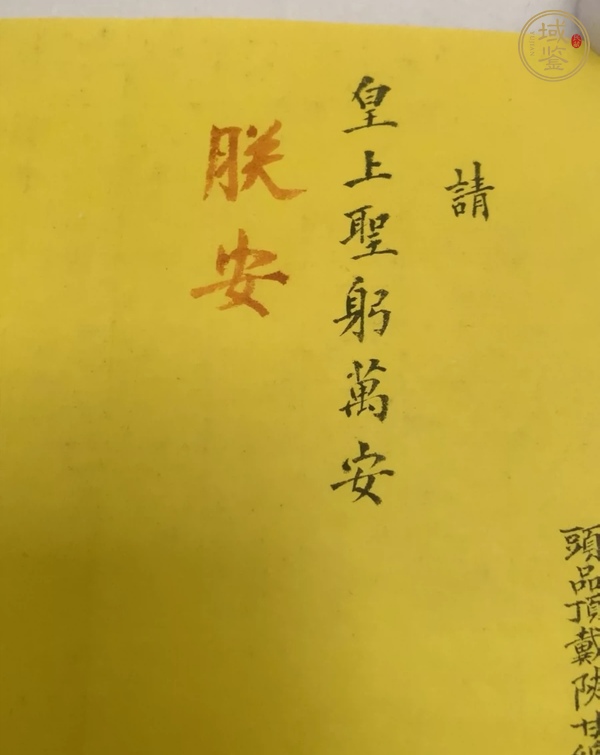 頭品頂戴陝甘總
請
皇上聖躬萬安
朕安
域鑒